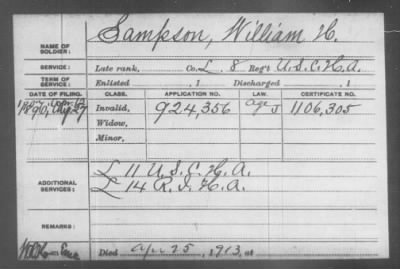 NAME OF SOLDIER: Sampson, William H.
SERVICE: Late rank, Co. L, 8 Reg't U.S.C.H.A.
TERM OF SERVICE: Enlisted , 1 Discharged , 1
DATE OF FILING. CLASS. APPLICATION NO. LAW. CERTIFICATE NO.
1890, Aug 27 Invalid, 924,356 1106,305
Widow,
Minor,
ADDITIONAL SERVICES: L 11 U.S.C.H.A.
L 14 R.I.H.A.
REMARKS:
Died Apr 25, 1913, at